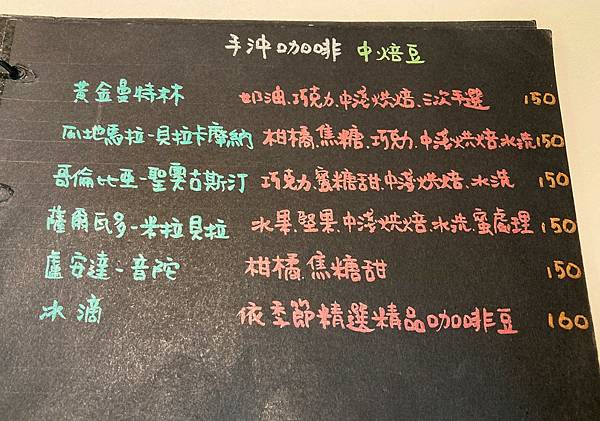 手沖咖啡 中焙豆
黃金曼特林 奶油.巧克力.中淺烘焙.三次手選 150
瓜地馬拉-貝拉卡摩納 柑橘.焦糖.巧力.中淺烘焙.水洗 150
哥倫比亞-聖奧古斯汀 巧克力.蜜糖甜.中淺烘焙.水洗 150
薩爾瓦多-米拉貝拉 水果.堅果.中淺烘焙.水洗.蜜處理 150
盧安達-音陀 柑橘.焦糖甜 150
冰滴 依季節精選精品咖啡豆 160